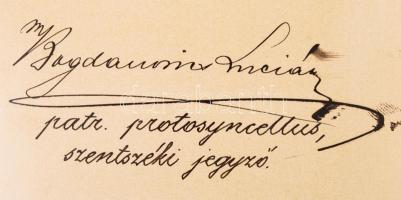 m
Bogdanovics Lucián
patr. protosyncellus,
szentszéki jegyző.